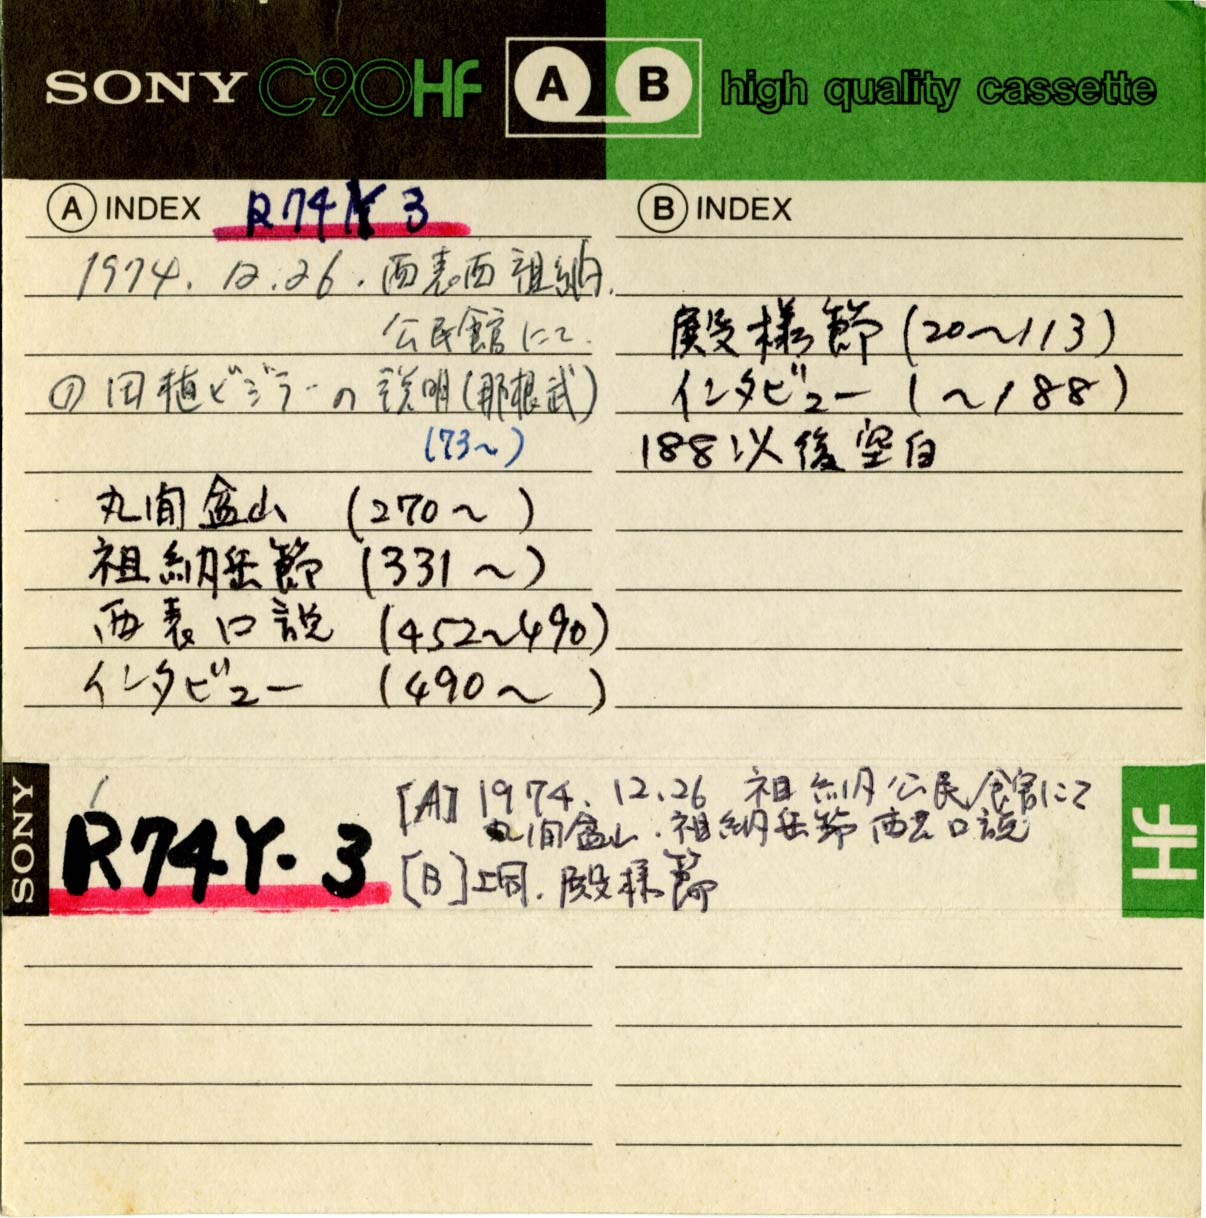 SONY C90HF A B high quality cassette
A INDEX R74Y 3
1974. 12. 26. 西表西祖納
公民館にて.
① 田植ビジラーの説明(那根武)
(73〜)
丸間盆山 (270〜 )
祖納岳節 (331〜)
西表口説 (452〜490)
インタビュー (490〜 )
B INDEX
殿様節 (20〜113)
インタビュー (〜188)
188以後空白
SONY
R74Y・3
[A] 1974. 12. 26 祖納公民館にて
丸間盆山・祖納岳節 西表口説
[B] 上同. 殿様節
HF